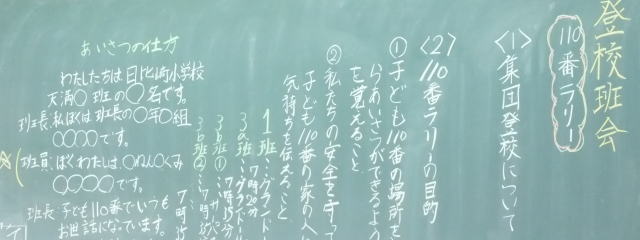 登校班会
110番ラリー
〈1〉集団登校について
〈2〉110番ラリーの目的
①子ども110番の場所を
らあいさつができるよう
を覚えること
②私たちの安全を守って
子ども110番の家の人に
気持ちを伝えること
1班…グランド
7時20分
3A班…グラ
7時15分
3B班①…
3B班②…
7時15
7時25
あいさつの仕方
わたしたちは日比崎小学校
天満〇班の〇名です。
班長:私ぼくは班長の〇年〇組
〇〇〇〇です。
班員:ぼくわたしは、〇ねん〇くみ
〇〇〇〇です。
班長:子ども110番でいつも
お世話になっています。